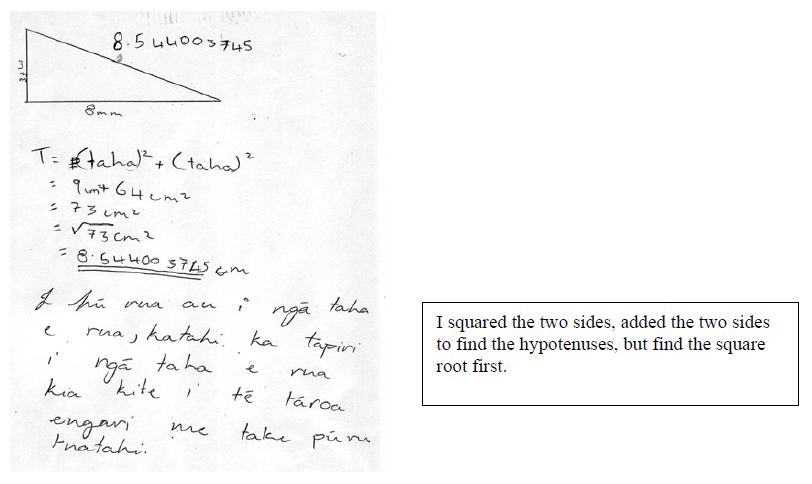 8.544003745
3
8mm
T = (taha)² + (taha)²
= 9cm² + 64cm²
= 73cm²
= √73cm²
= 8.544003745cm
I pū rua au i ngā taha
e rua, katahi ka tāpiri
i ngā taha e rua
kia kite i te tāroa
engari me take pūrua
tuatahi.
I squared the two sides, added the two sides
to find the hypotenuses, but find the square
root first.